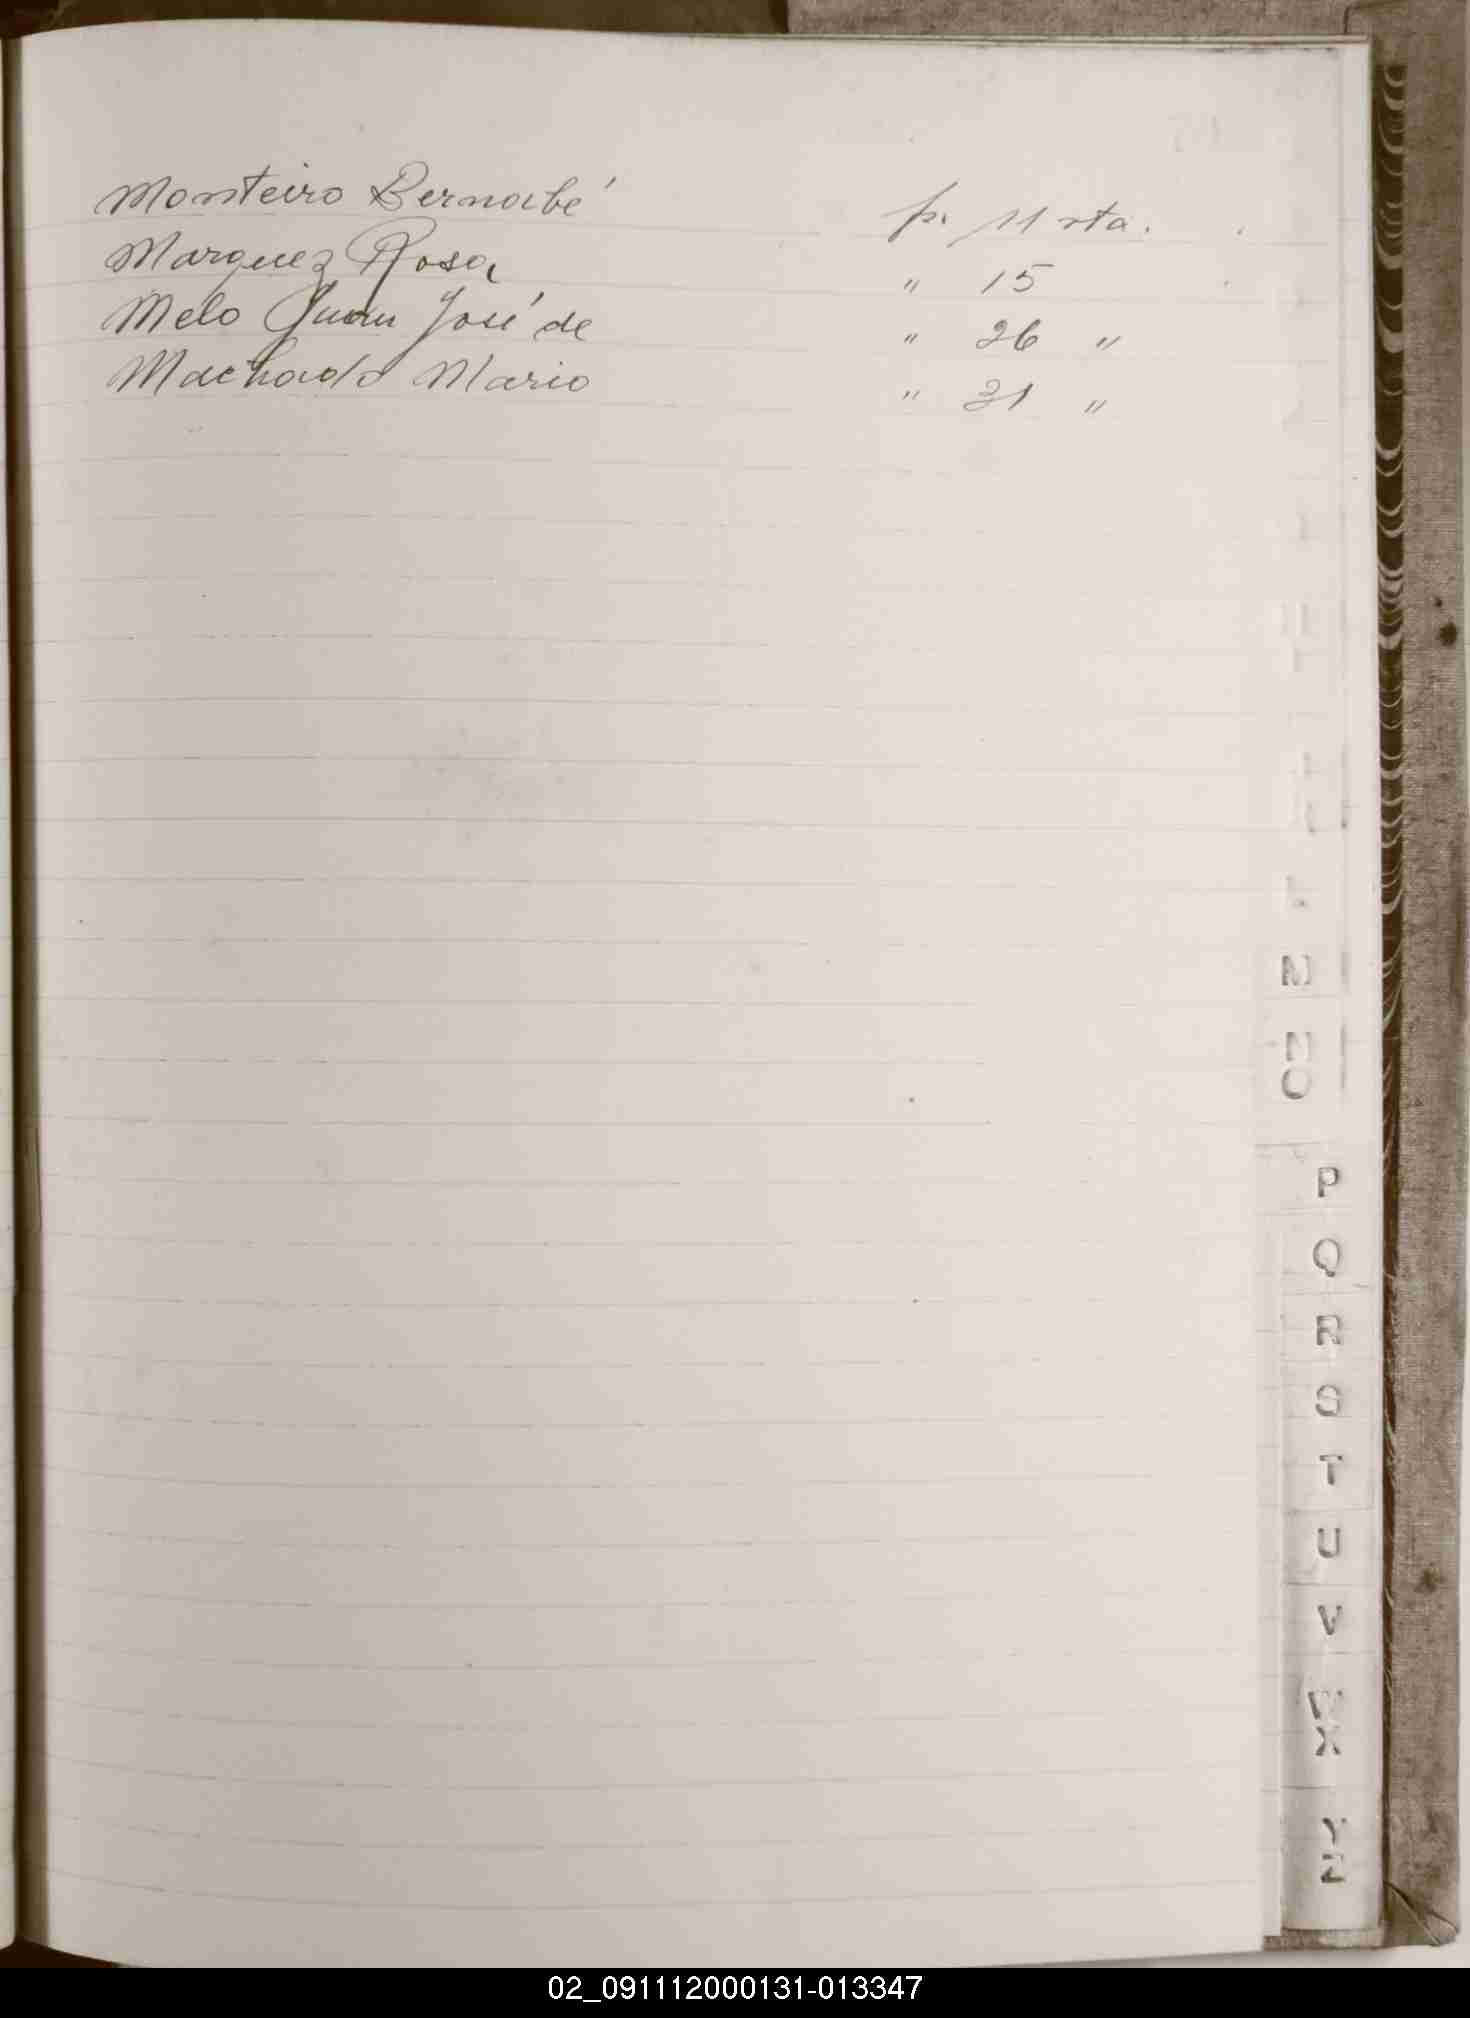 Monteiro Bernabé p. 11 vta.
Marquez Rosa " 15
Melo Juan José de " 26 "
Machado Mario " 31 "
M
N
O
P
Q
R
S
T
U
V
W
X
Y
Z
02_091112000131-013347